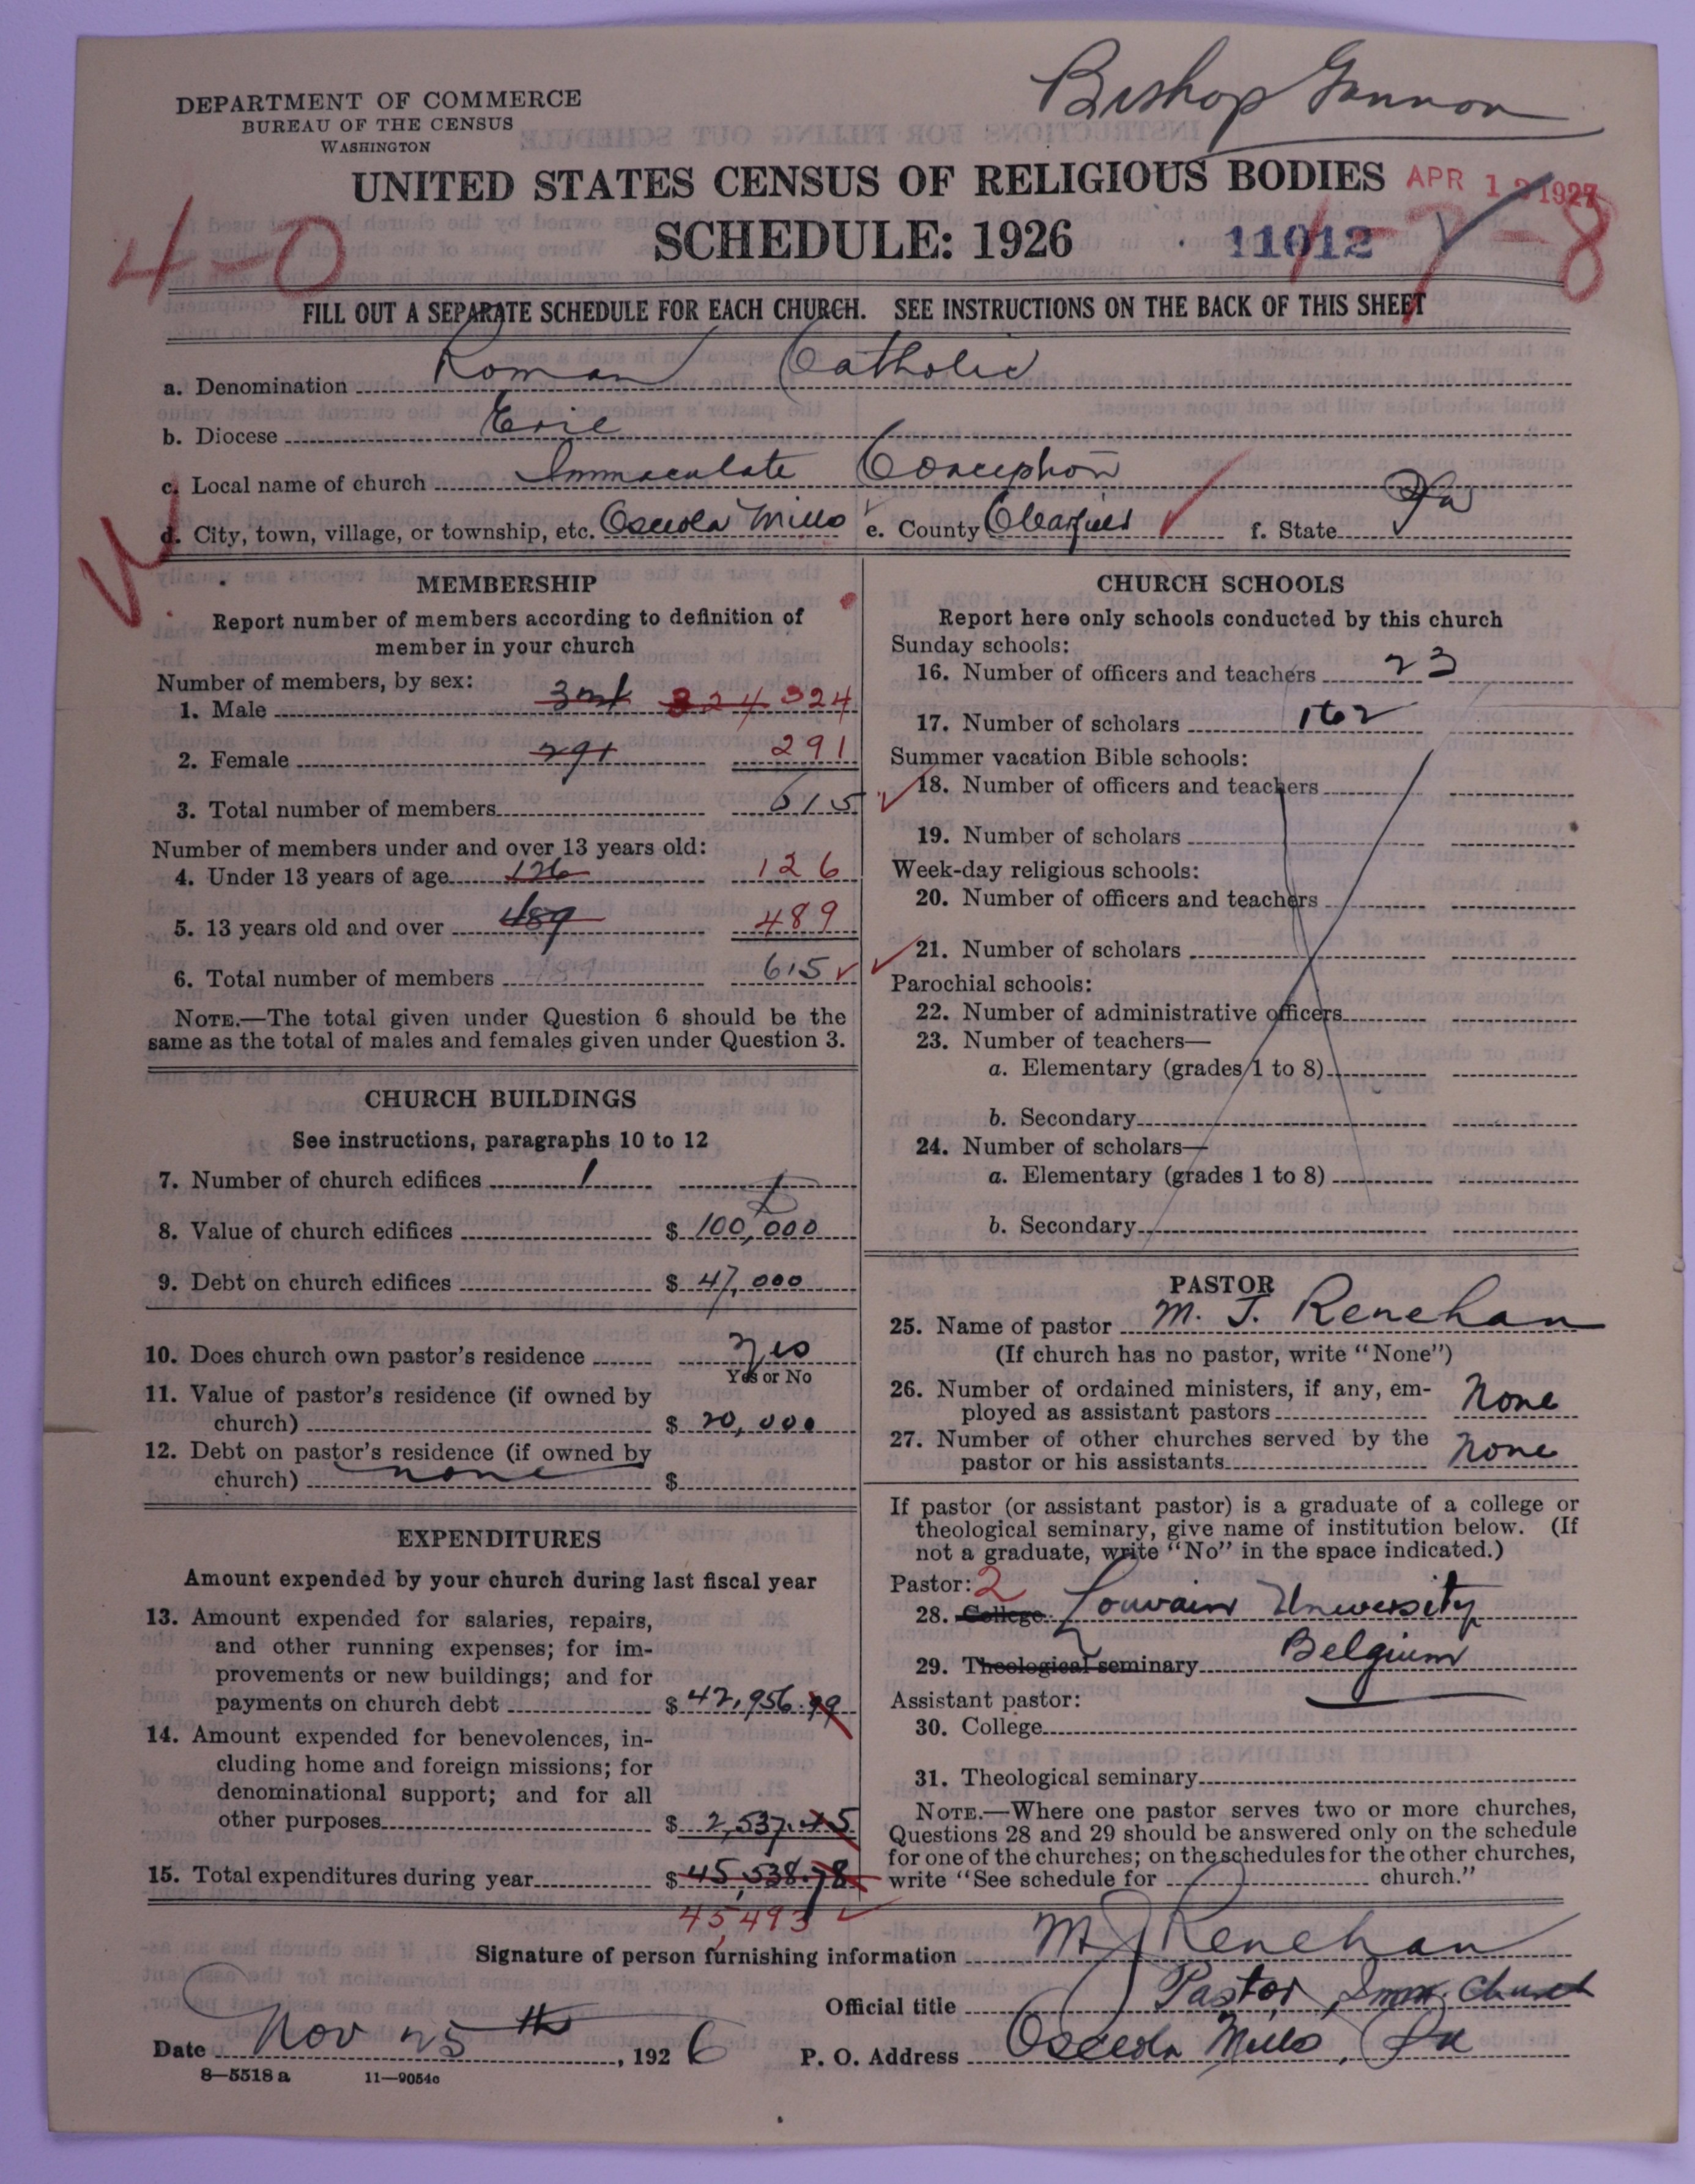 Bishop Gannon
DEPARTMENT OF COMMERCE
BUREAU OF THE CENSUS
WASHINGTON
UNITED STATES CENSUS OF RELIGIOUS BODIES
APR 12 1927
SCHEDULE: 1926
11012
4-0
1-7-8
FILL OUT A SEPARATE SCHEDULE FOR EACH CHURCH. SEE INSTRUCTIONS ON THE BACK OF THIS SHEET
a. Denomination Roman Catholic
b. Diocese Erie
c. Local name of church Immaculate Conception
d. City, town, village, or township, etc. Osceola Mills e. County Clearfield f. State Pa
MEMBERSHIP
Report number of members according to definition of
member in your church
Number of members, by sex:
1. Male 324 324
2. Female 291 291
3. Total number of members 615
Number of members under and over 13 years old:
4. Under 13 years of age 126 126
5. 13 years old and over 489 489
6. Total number of members 615
NOTE.—The total given under Question 6 should be the
same as the total of males and females given under Question 3.
CHURCH BUILDINGS
See instructions, paragraphs 10 to 12
7. Number of church edifices 1 1
8. Value of church edifices $ 100,000
9. Debt on church edifices $ 47,000
10. Does church own pastor's residence Yes
Yes or No
11. Value of pastor's residence (if owned by
church) $ 20,000
12. Debt on pastor's residence (if owned by
church) none $
EXPENDITURES
Amount expended by your church during last fiscal year
13. Amount expended for salaries, repairs,
and other running expenses; for im-
provements or new buildings; and for
payments on church debt $ 42,956.99
14. Amount expended for benevolences, in-
cluding home and foreign missions; for
denominational support; and for all
other purposes $ 2,537.45
15. Total expenditures during year $ 45,538.78
45,493
CHURCH SCHOOLS
Report here only schools conducted by this church
Sunday schools:
16. Number of officers and teachers 23
17. Number of scholars 162
Summer vacation Bible schools:
18. Number of officers and teachers
19. Number of scholars
Week-day religious schools:
20. Number of officers and teachers
21. Number of scholars
Parochial schools:
22. Number of administrative officers
23. Number of teachers—
a. Elementary (grades 1 to 8)
b. Secondary
24. Number of scholars—
a. Elementary (grades 1 to 8)
b. Secondary
PASTOR
25. Name of pastor M. J. Renehan
(If church has no pastor, write "None")
26. Number of ordained ministers, if any, em-
ployed as assistant pastors None
27. Number of other churches served by the
pastor or his assistants None
If pastor (or assistant pastor) is a graduate of a college or
theological seminary, give name of institution below. (If
not a graduate, write "No" in the space indicated.)
Pastor: 2
28. College Louvain University
29. Theological seminary Belgium
Assistant pastor:
30. College
31. Theological seminary
NOTE.—Where one pastor serves two or more churches,
Questions 28 and 29 should be answered only on the schedule
for one of the churches; on the schedules for the other churches,
write "See schedule for church."
Signature of person furnishing information M J Renehan
Official title Pastor, Imm. Church
Date Nov 25th, 1926 P. O. Address Osceola Mills, Pa
8—5518 a 11—9054c